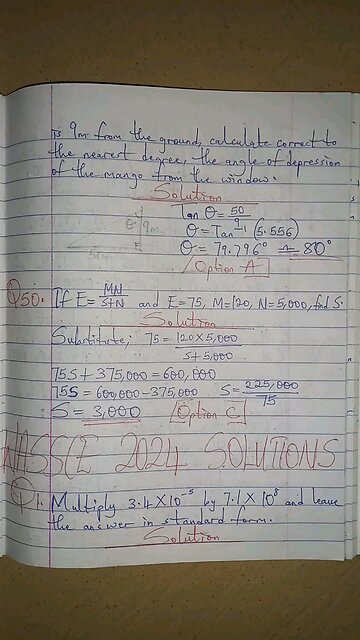 is 9m from the ground, calculate correct to
the nearest degree, the angle of depression
of the mango from the window.
Solution
Tan θ = 50/9
θ = Tan⁻¹ (5.556)
θ = 79.796° ≈ 80°
Option A
Q50. If E = MN/S+N and E=75, M=120, N=5,000, find S.
Solution
Substitute; 75 = 120 × 5,000/S + 5,000
75S + 375,000 = 600,000
75S = 600,000 - 375,000 S = 225,000/75
S = 3,000 Option C
WASSCE 2024 SOLUTIONS
Q1. Multiply 3.4 × 10⁻⁵ by 7.1 × 10⁸ and leave
the answer in standard form.
Solution